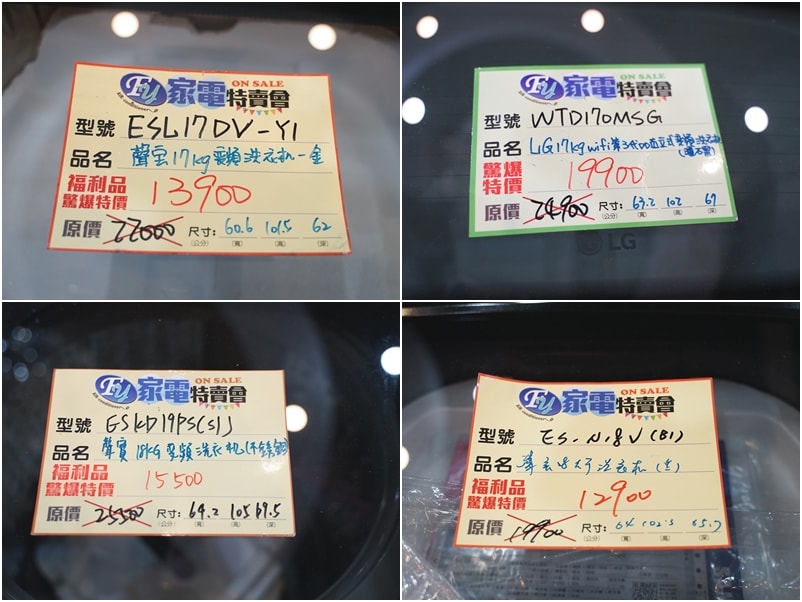 Fu 家電 ON SALE 特賣會
型號 ESL17DV-Y1
品名 聲寶17kg變頻洗衣機-金
福利品 驚爆特價 13900
原價 22000 尺寸:(公分) 60.6(寬) 101.5(高) 62(深)
Fu 家電 ON SALE 特賣會
型號 WTD170MSG
品名 LG17kg wifi第3代DD直立式變頻洗衣機
驚爆特價 19900
原價 24900 尺寸:(公分) 63.2(寬) 102(高) 67(深)
LG
Fu 家電 ON SALE 特賣會
型號 ESKD19PS(S1)
品名 聲寶18KG變頻洗衣機(不鏽鋼)
福利品 驚爆特價 15500
原價 25500 尺寸:(公分) 64.2(寬) 105(高) 67.5(深)
Fu 家電 ON SALE 特賣會
型號 ES-N18V(B1)
品名 洗衣機
福利品 驚爆特價 12900
原價 19900 尺寸:(公分) 64(寬) 102.5(高) 65.7(深)